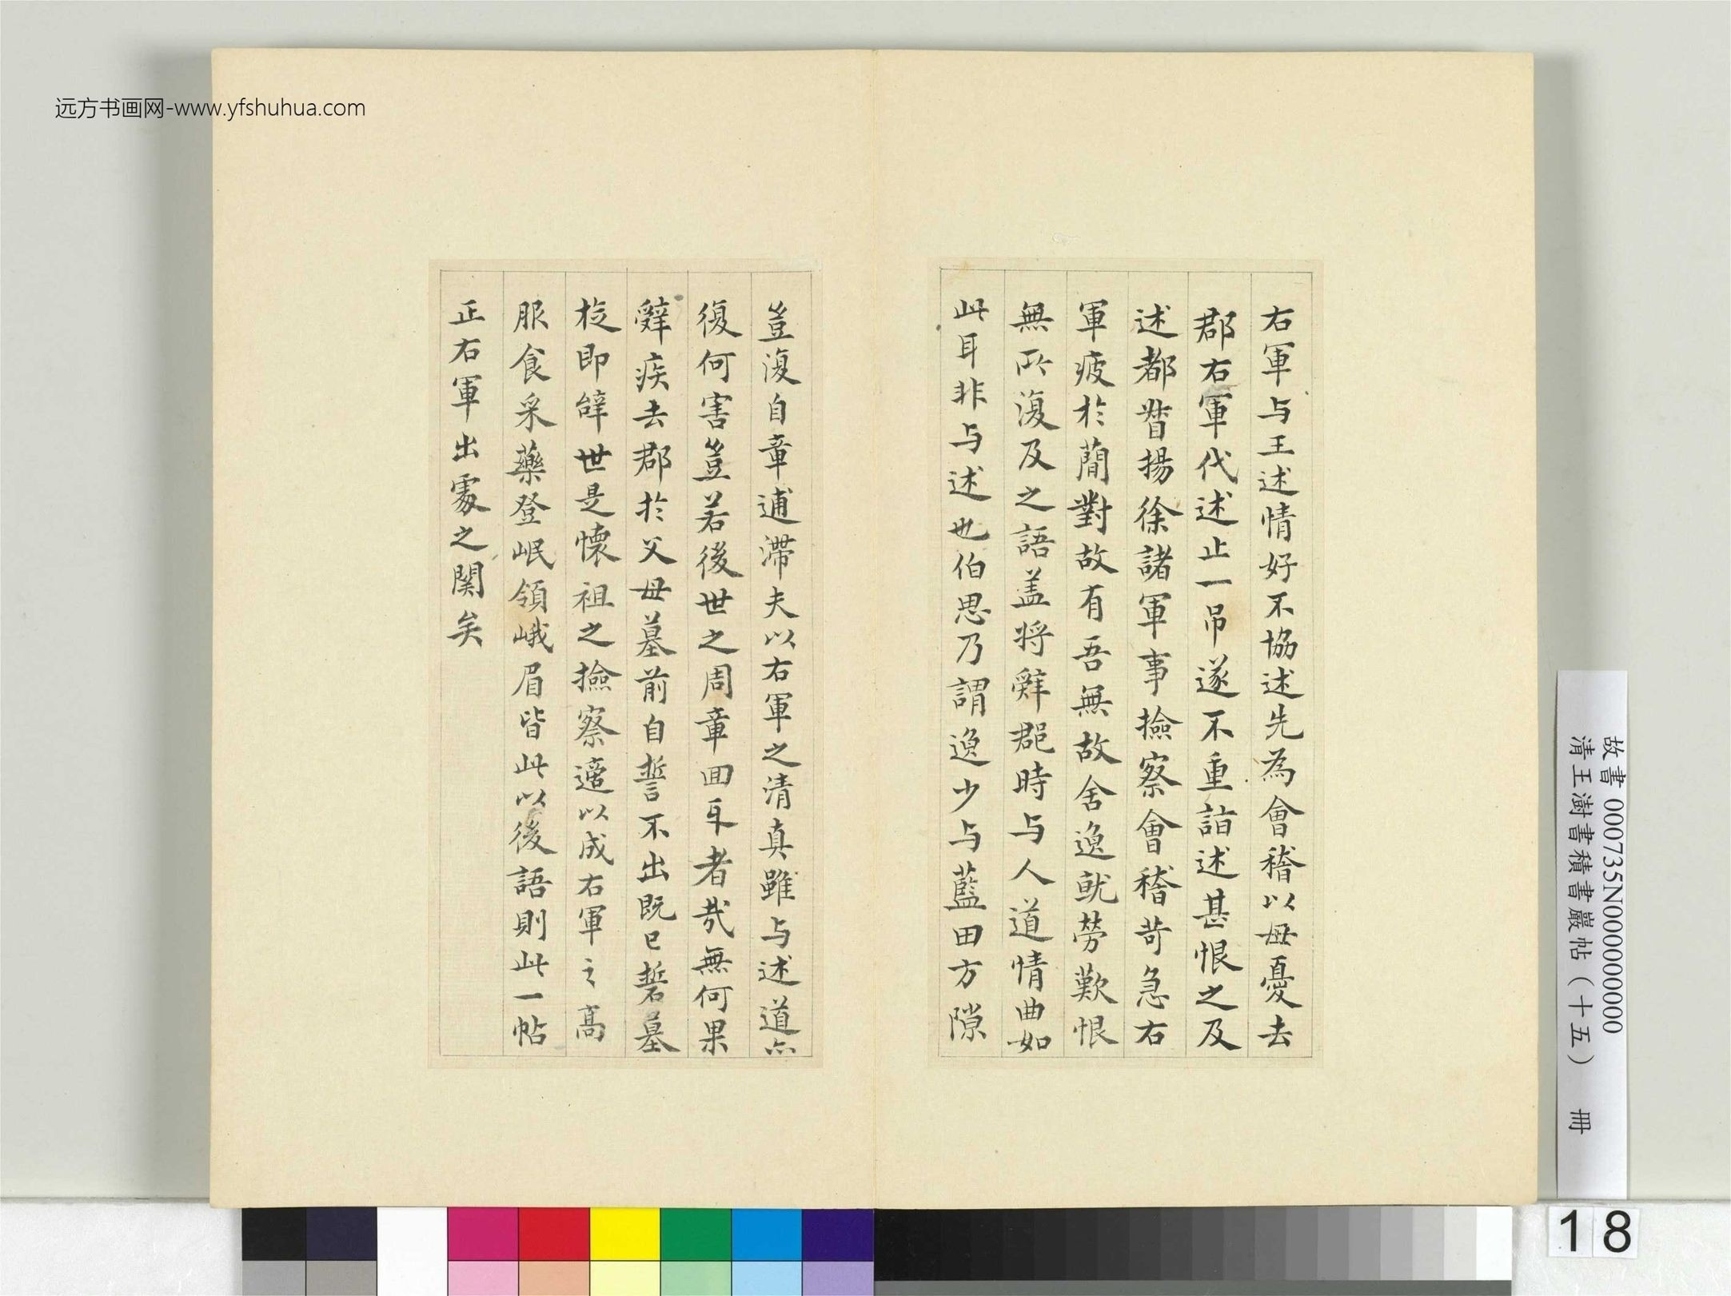 远方书画网-www.yfshuhua.com
右軍与王述情好不協述先為會稽以毋憂去
郡右軍代述止一吊遂不重詣述甚恨之及
述都督揚徐諸軍事撿察會稽苛急右
軍疲於蕳對故有吾無故舍逸就勞歎恨
無所復及之語盖将辭郡時与人道情曲如
此耳非与述也伯思乃謂逸少与藍田方隙
豈復自章逋滯夫以右軍之清真雖与述道亦
復何害豈若後世之周章回互者哉無何果
辭疾去郡於父毋墓前自誓不出既已誓墓
旋即辭世是懷祖之撿察適以成右軍之高
服食采藥登岷領峨眉皆此以後語則此一帖
正右軍出處之関矣
故書 000735N000000000
清王澍書積書巖帖（十五） 冊
18